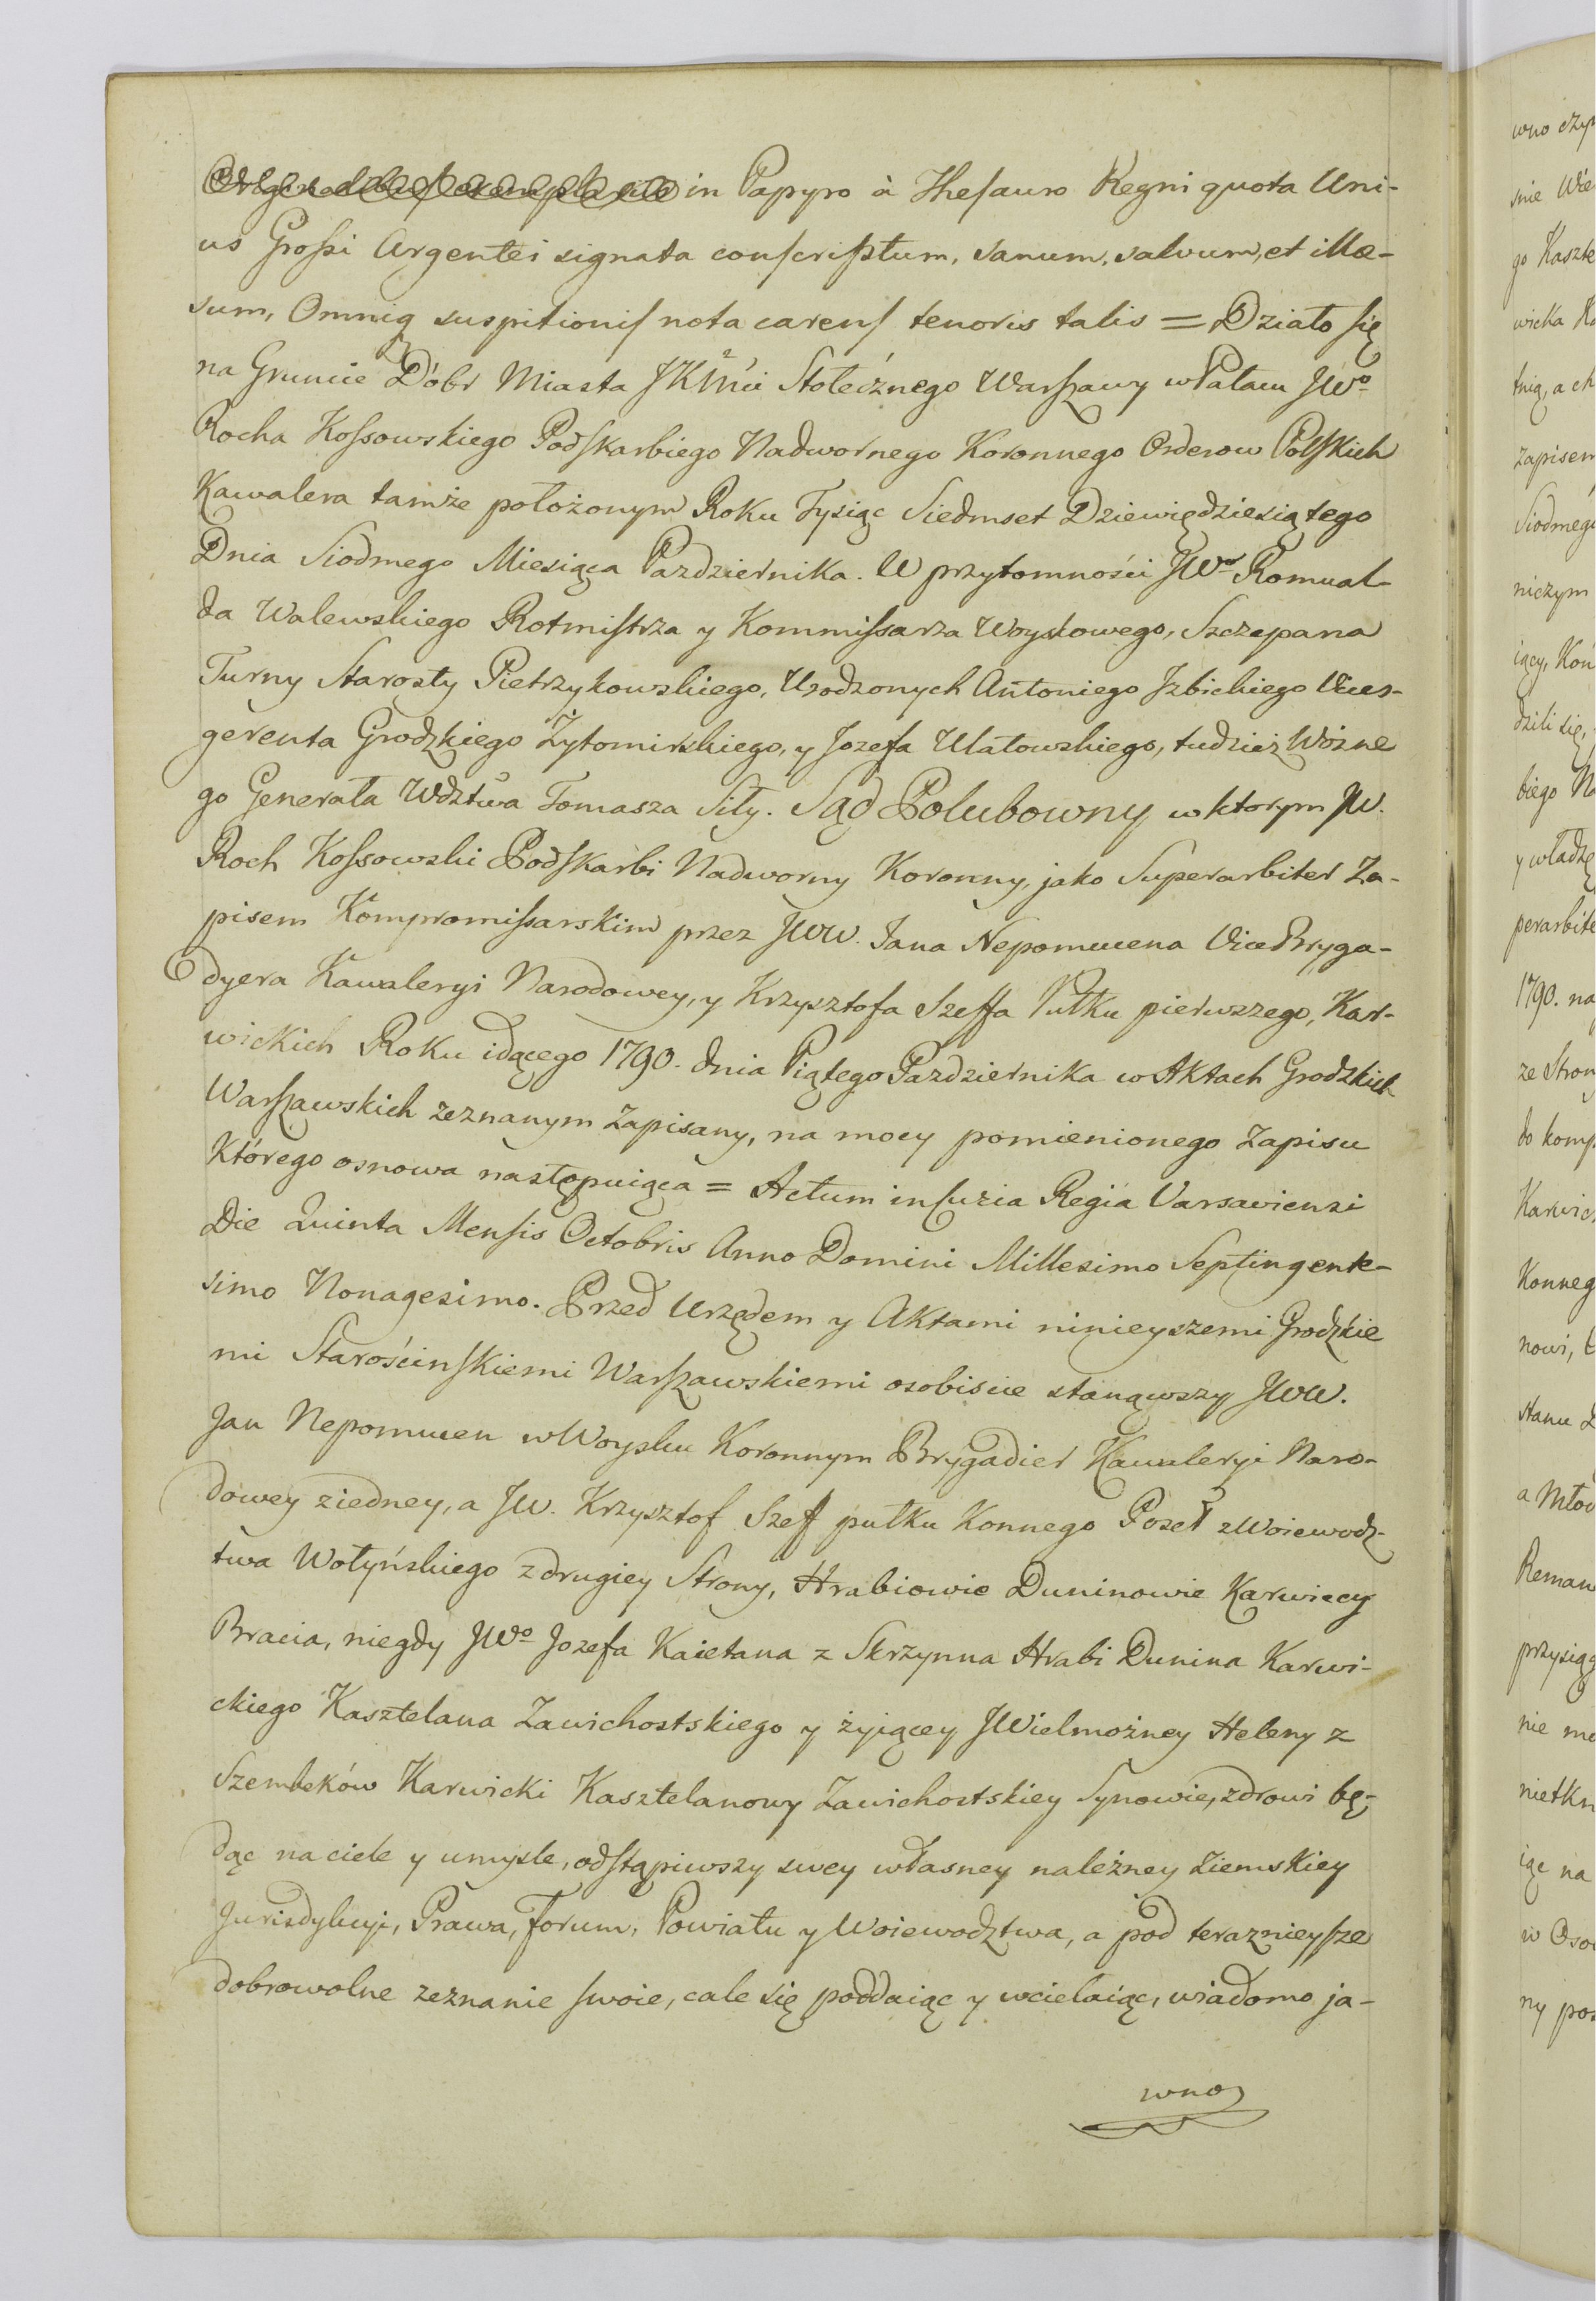 in Papyro à Thesauro Regni quota Uni-
us Grossi Argentei signata conscriptum, sanum, salvum, et illæ-
sum, Omniq suspitionis nota carens tenoris talis = Działo się
na Gruncie Dóbr Miasta JKMci Stołecznego Warszawy w Pałacu JWo
Rocha Kossowskiego Podskarbiego Nadwornego Koronnego Orderow Polskich
Kawalera tamże położonym Roku Tysiąc Siedmset Dziewiędziesiątego
Dnia Siodmego Miesiąca Pazdziernika. W przytomności JWo Romual-
da Walewskiego Rotmistrza y Kommissarza Woyskowego, Szczepana
Turny Starosty Pietrzykowskiego, Urodzonych Antoniego Jzbickiego Vices-
gerenta Grodzkiego Żytomirskiego, y Jozefa Ulatowskiego, tudzież Wózne
go Generała Wdztwa Tomasza Siły. Sąd Polubowny w ktorym JW.
Roch Kossowski Podskarbi Nadworny Koronny, jako Superarbiter Za-
pisem Kompromissarskim przez JWW. Jana Nepomucena Vice Bryga-
dyera Kawaleryi Narodowey, y Krzysztofa Szeffa Pułku pierwszego, Kar-
wickich Roku idącego 1790. dnia Piątego Pazdziernika w Aktach Grodzkich
Warszawskich zeznanym Zapisany, na mocy pomienionego Zapisu
Którego osnowa następuiąca = Actum in Curia Regia Varsaviensi
Die Quinta Mensis Octobris Anno Domini Millesimo Septingente-
simo Nonagesimo. Przed Urzędem y Aktami ninieyszemi Grodzkie
mi Starościnskiemi Warszawskiemi osobiscie stanąwszy JWW.
Jan Nepomucen w Woysku Koronnym Brygadier Kawaleryi Naro-
dowey ziedney, a JW. Krzysztof Szef pułku Konnego Poseł z Woiewodz-
twa Wołyńskiego z drugiey Strony, Hrabiowie Duninowie Karwiccy
Bracia, niegdy JWo Jozefa Kaietana z Skrzynna Hrabi Dunina Karwi-
ckiego Kasztelana Zawichostskiego y żyiącey JWielmożney Heleny z
Szembeków Karwicki Kasztelanowy Zawichostskiey Synowie, zdrowi bę-
dąc na ciele y umysle, odstąpiwszy swey własney należney Ziemskiey
Jurisdykcyi, Prawa, Forum, Powiatu y Woiewodztwa, a pod teraznieysze
dobrowolne zeznanie swoie, cale się poddaiąc y wcielaiąc, wiadomo ja-
wno